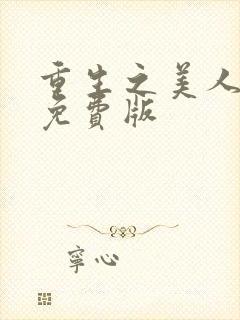 重生之美人
免費版
寧心